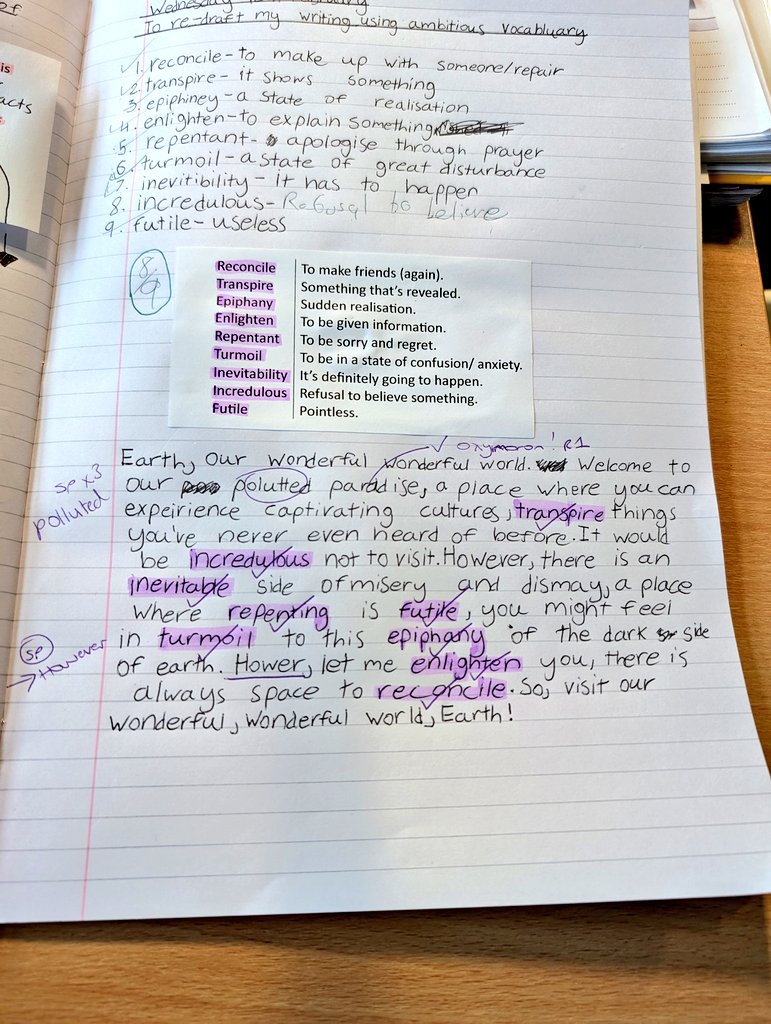 of
is
acts
Wednesday
To re-draft my writing using ambitious vocabluary
1. reconcile - to make up with someone/repair
2. transpire - it shows something
3. epiphiney - a state of realisation
4. enlighten - to explain something
5. repentant - apologise through prayer
6. turmoil - a state of great disturbance
7. inevitibility - it has to happen
8. incredulous - Refusal to believe
9. futile - useless
8/9
Reconcile To make friends (again).
Transpire Something that's revealed.
Epiphany Sudden realisation.
Enlighten To be given information.
Repentant To be sorry and regret.
Turmoil To be in a state of confusion/ anxiety.
Inevitability It's definitely going to happen.
Incredulous Refusal to believe something.
Futile Pointless.
✓ oxymoron! R1
Earth, Our wonderful wonderful world. Welcome to
sp x3
our polutted paradise, a place where you can
polluted
expeirience captivating cultures, transpire things
you've never even heard of before. It would
be incredulous not to visit. However, there is an
inevitable side of misery and dismay, a place
where repenting is futile, you might feel
in turmoil to this epiphany of the dark side
sp
→ However
of earth. Hower, let me enlighten you, there is
always space to reconcile. So, visit our
wonderful, wonderful world, Earth!